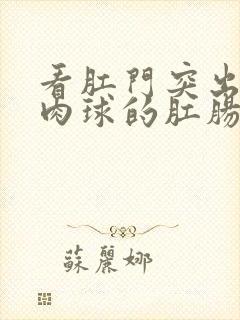 看肛門突出
肉球的肛腸
蘇麗娜